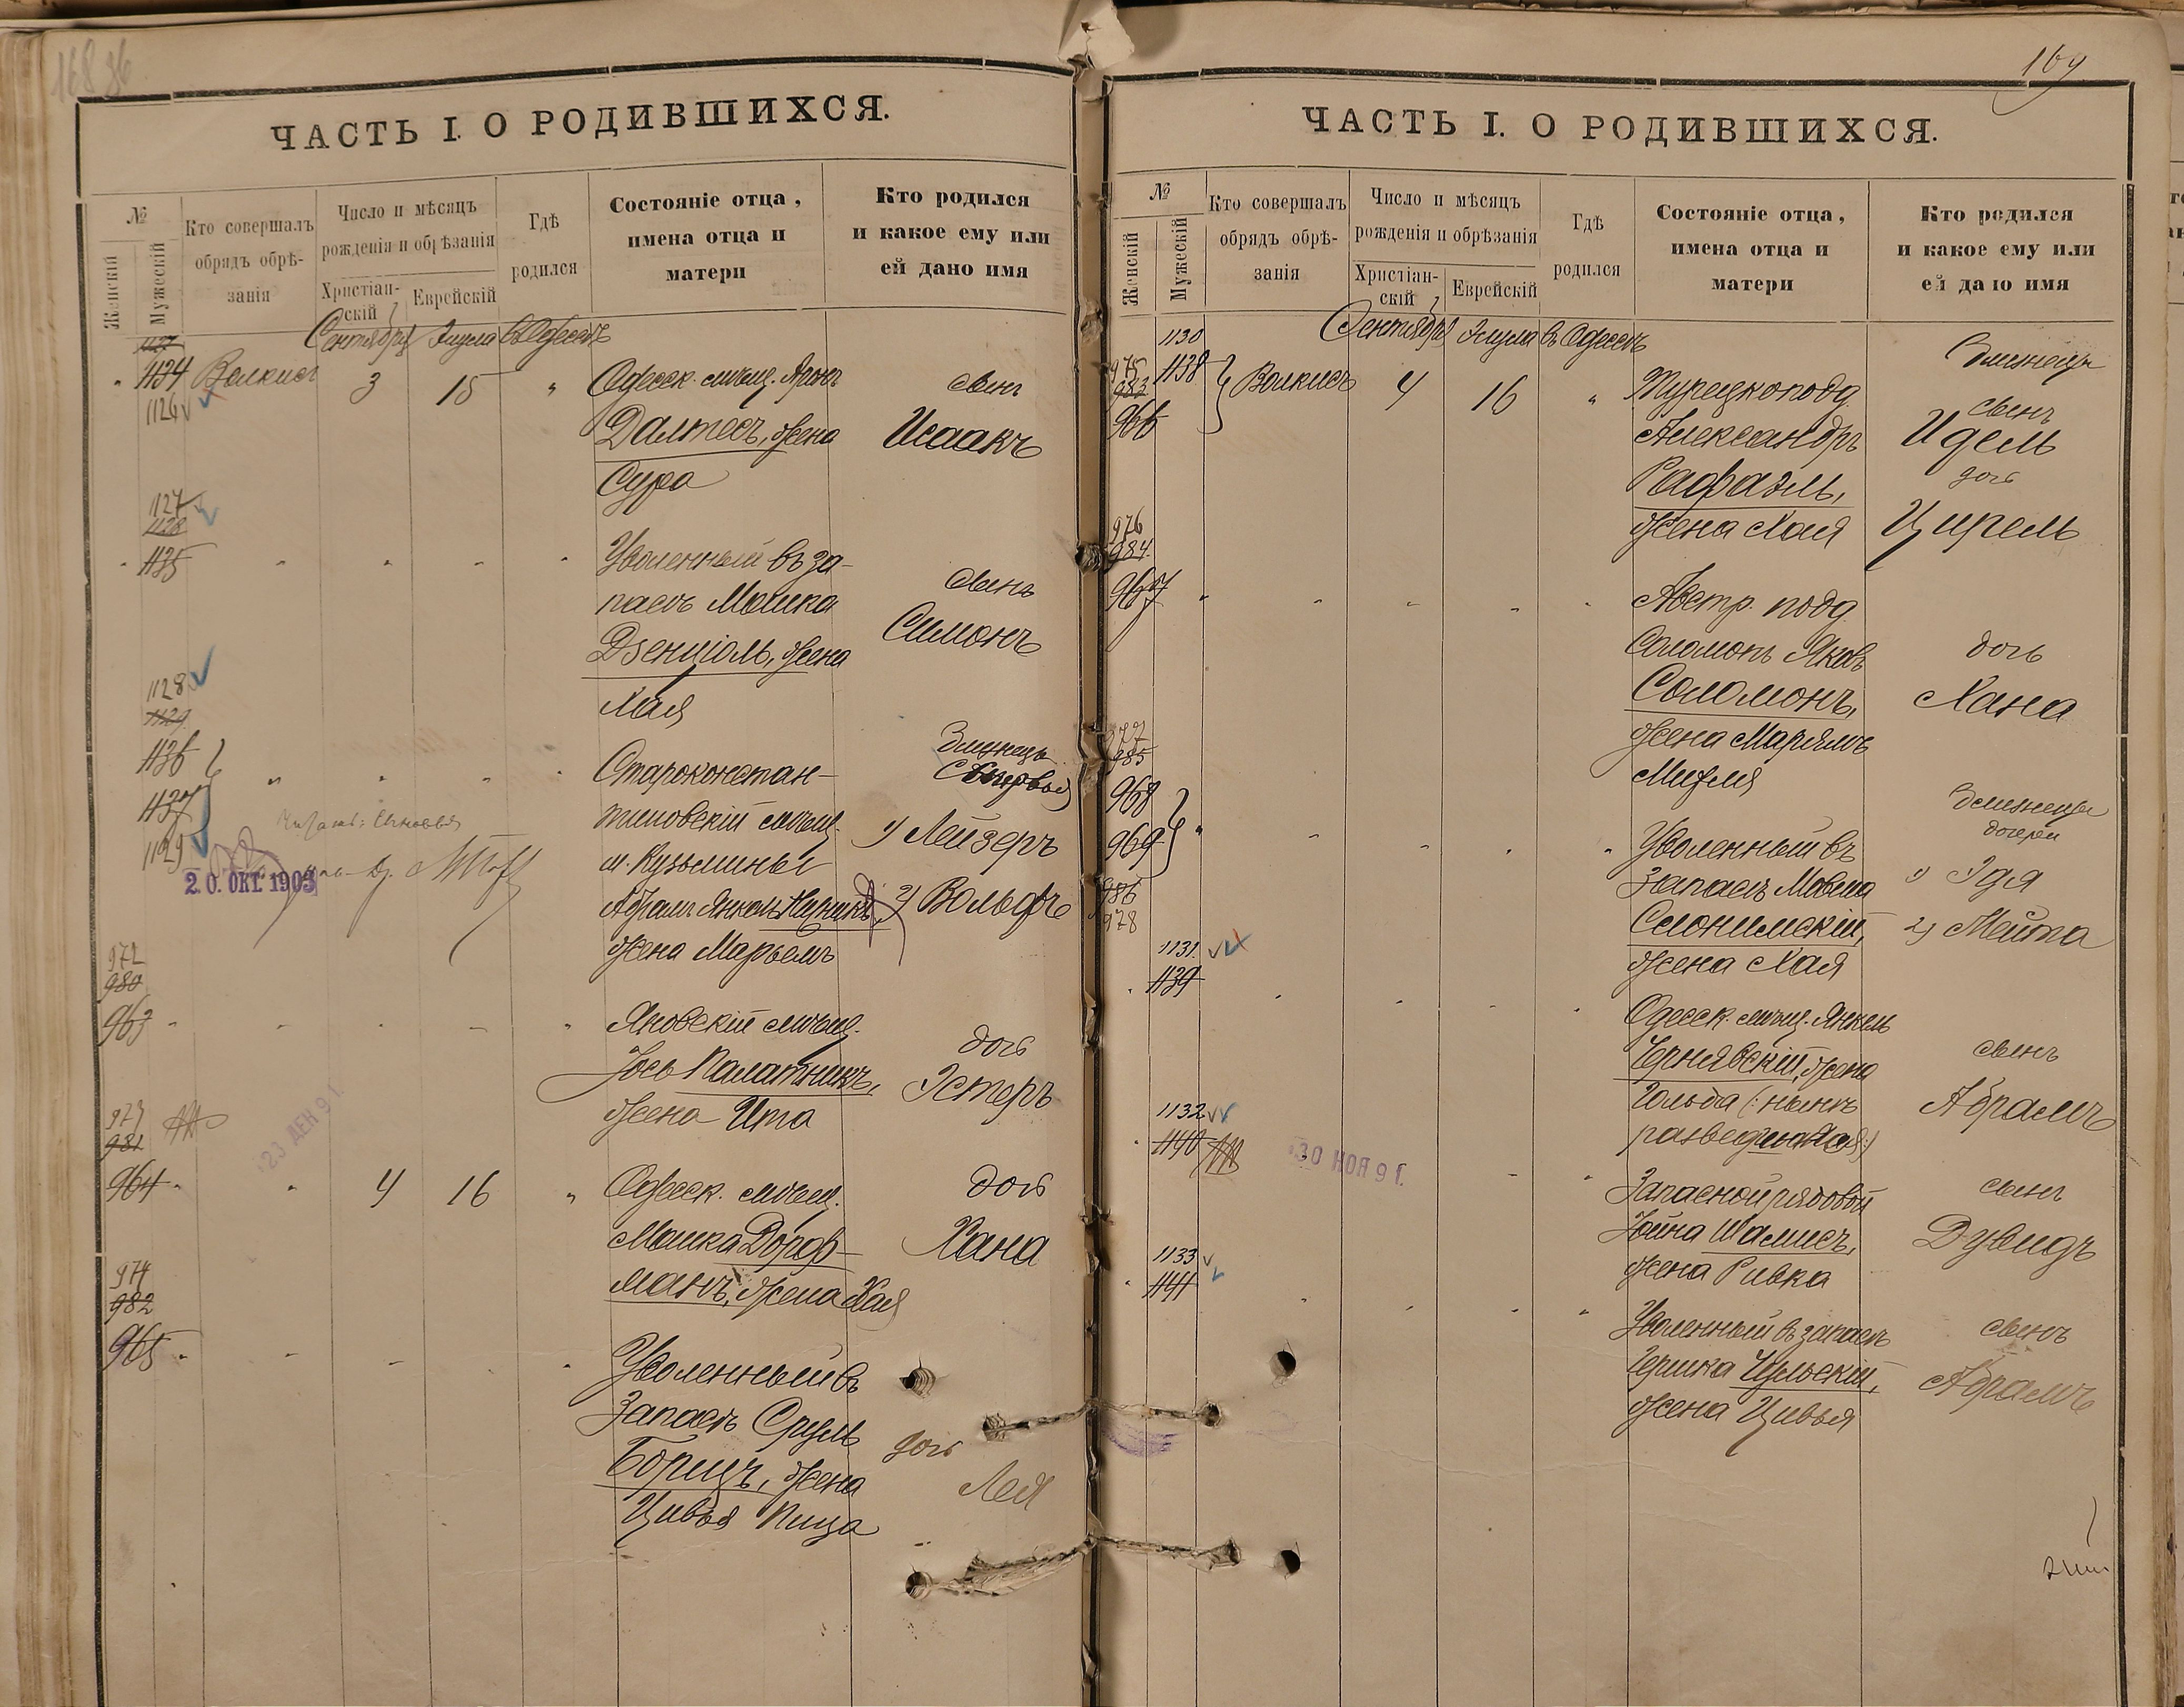 168
ЧАСТЬ I. О РОДИВШИХСЯ.
№
Женскій
Мужескій
Кто совершалъ
обрядъ обрѣ-
занія
Число и мѣсяцъ
рожденія и обрѣзанія
Христіан-
скій
Еврейскій
Гдѣ
родился
Состояніе отца,
имена отца и
матери
Кто родился
и какое ему или
ей дано имя
Сентября Элула въ Одессѣ
1134 Волкисъ 3 15 " Одесск. мѣщ. Аронъ сынъ
1126
Далтесъ, жена Исаакъ
Сура
1127
1128
1135 Уволенный въ за-
пасъ Мошка сынъ
Дзенціолъ, жена Симонъ
Хая
1128
1129
1136 Староконстан- Близнецы
1137 тиновскій мѣщ. 1) Лейзеръ
1129 м. Кузьмины
20. ОКТ. 1903
Абрамъ Янкель 2) Вольфъ
жена Марьемъ
972
980
963 Яновскій мѣщ. дочь
Іось Палатникъ, Эстеръ
жена Ита
973
981
23 ДЕК 91
964 4 16 " Одесск. мѣщ. дочь
Мошка Дорф- Хана
манъ, жена Хая
974
982
965 Уволенный въ
Запасъ Сруль дочь
Борицъ, жена Лея
Цивья
169
ЧАСТЬ I. О РОДИВШИХСЯ.
№
Женскій
Мужескій
Кто совершалъ
обрядъ обрѣ-
занія
Число и мѣсяцъ
рожденія и обрѣзанія
Христіан-
скій
Еврейскій
Гдѣ
родился
Состояніе отца,
имена отца и
матери
Кто родился
и какое ему или
ей дано имя
1130 Сентября Элула въ Одессѣ
975 1138 Волкисъ 4 16 " Турецкопод. Близнецы
983
966 Александръ сынъ Идель
Рафаэль, дочь
жена Хая Цирель
976
984
967 Австр. под.
Соломонъ Яковъ дочь
Соломонъ, Хана
жена Марьямъ
977
985
968 Близнецы
969 Уволенный въ дочери
Запасъ Мовша 1) Эдя
986
978
Слонимскій, 2) Мейта
жена Хая
1131
1139 Одесск. мѣщ. Янкель
Чернявскій, жена сынъ
Гольда (: нынѣ Абрамъ
разведенная:)
1132
1140
30 НОЯ 91
Запасной рядовой сынъ
Іойна Шамисъ, Дувидъ
жена Ривка
1133
1141 Уволенный въ запасъ сынъ
Гершка Абрамъ
жена Цивья